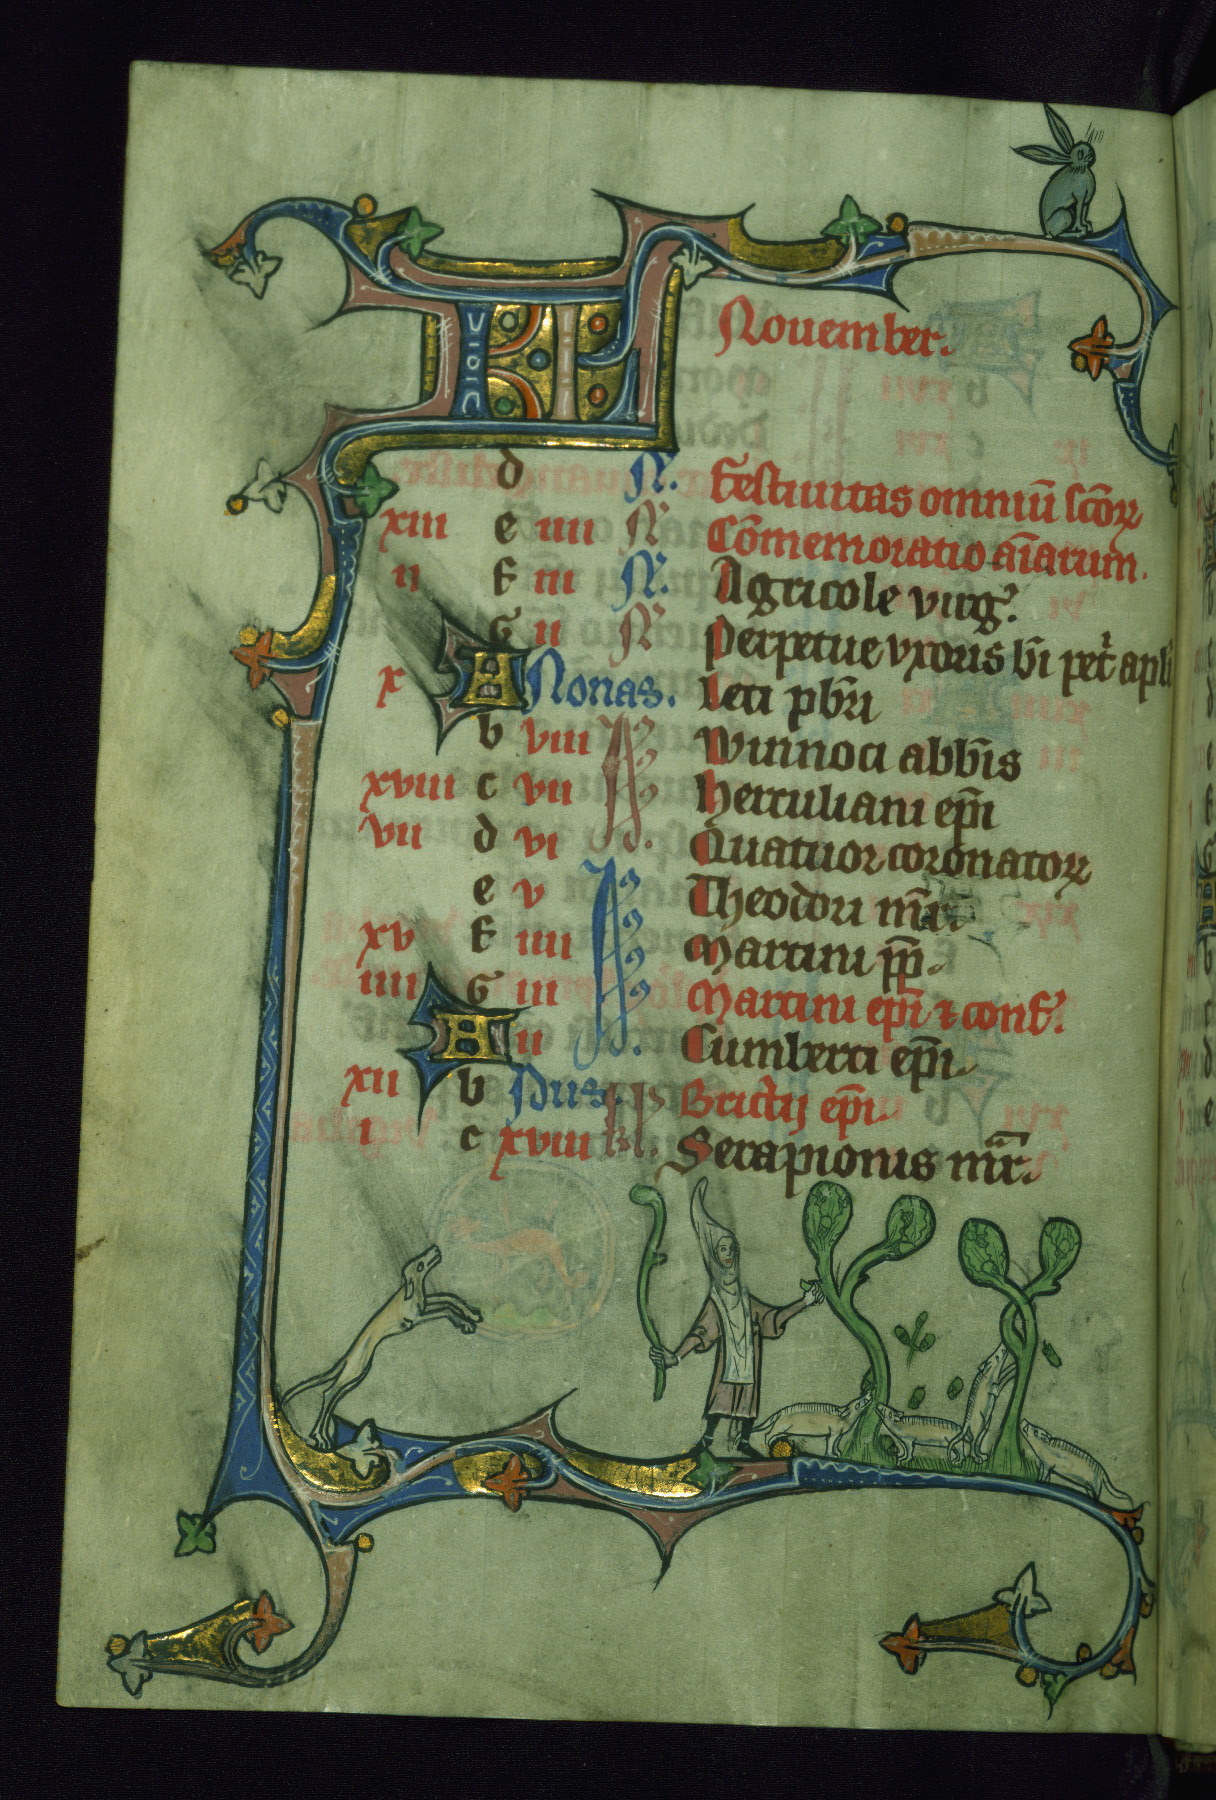 KL November.
d N. Festiuitas omniū sc̄oꝝ
xiii e iiii N. Cōmemoratio āiarum.
ii f iii N. Agricole virg̾.
G ii N. Perpetue vxoris b̄i pet̾ apl̄i
x A Nonas. Leti pb̄ri
b viii I Winnoci abb̄is
xviii c vii Herculiani ep̄i
vii d vi d. Quatuor coronatoꝝ
e v I Theodori m̄r.
xv f iiii Martini pp̄.
iiii G iii Martini ep̄i ⁊ conf̾.
A ii d. Cumberti ep̄i.
xii b Idus. Bricti͛j ep̄i.
i c xviii kl. Serapionis m̄r.